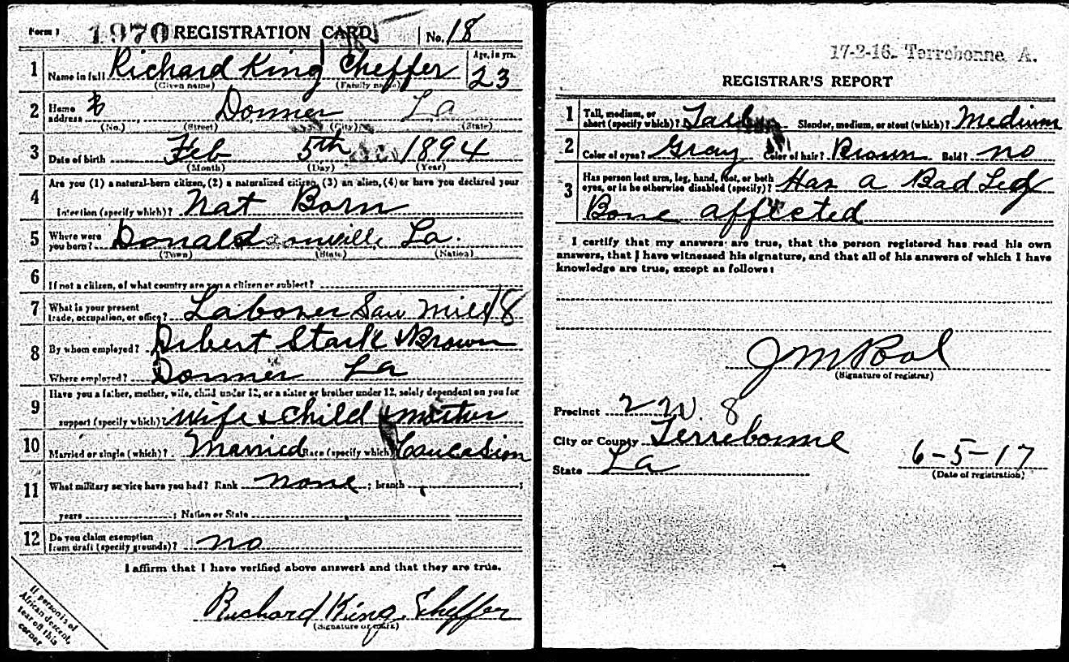 Form 1 1970 REGISTRATION CARD No. 18
1 Name in full Richard King Cheffer Age, in yrs. 23
(Given name) (Family name)
2 Home address Donner La
(No.) (Street) (City) (State)
3 Date of birth Feb 5th 1894
(Month) (Day) (Year)
4 Are you (1) a natural-born citizen, (2) a naturalized citizen, (3) an alien, (4) or have you declared your
intention (specify which)? Nat Born
5 Where were you born? Donaldsonville, La.
(Town) (State) (Nation)
6 If not a citizen, of what country are you a citizen or subject?
7 What is your present trade, occupation, or office? Laborer Saw Mill 18
8 By whom employed? Dibert Stark & Brown
Where employed? Donner La
9 Have you a father, mother, wife, child under 12, or a sister or brother under 12, solely dependent on you for
support (specify which)? wife & child & mother
10 Married or single (which)? Married Race (specify which)? Caucasion
11 What military service have you had? Rank none ; branch ;
years ; Nation or State
12 Do you claim exemption from draft (specify grounds)? no
I affirm that I have verified above answers and that they are true.
Richard King Cheffer
(Signature or mark)
If person is of
African descent,
tear off this
corner
17-2-16. Terrebonne A.
REGISTRAR'S REPORT
1 Tall, medium, or short (specify which)? Tall Slender, medium, or stout (which)? Medium
2 Color of eyes? Gray Color of hair? Brown Bald? no
3 Has person lost arm, leg, hand, foot, or both eyes, or is he otherwise disabled (specify)? Has a Bad Leg
Bone affected
I certify that my answers are true, that the person registered has read his own
answers, that I have witnessed his signature, and that all of his answers of which I have
knowledge are true, except as follows:
J M Pool
(Signature of registrar)
Precinct 2 W. 8
City or County Terrebonne
State La 6-5-17
(Date of registration)